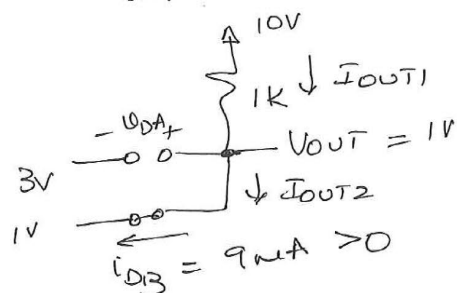 10V
1K ↓ IOUT1
- VDA +
3V
VOUT = 1V
↓ IOUT2
1V
iDB = 9mA >0